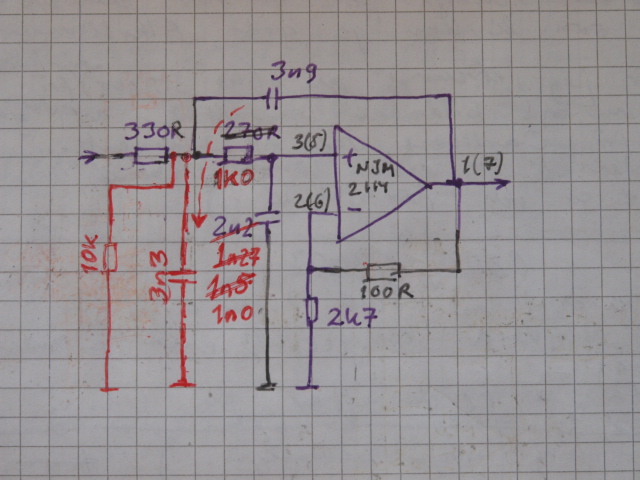 3n9
330R
270R
1K0
3(5)
1(7)
+
NJM
2114
2(6)
-
10k
3n3
2n2
1n27
1n5
1n0
100R
2k7